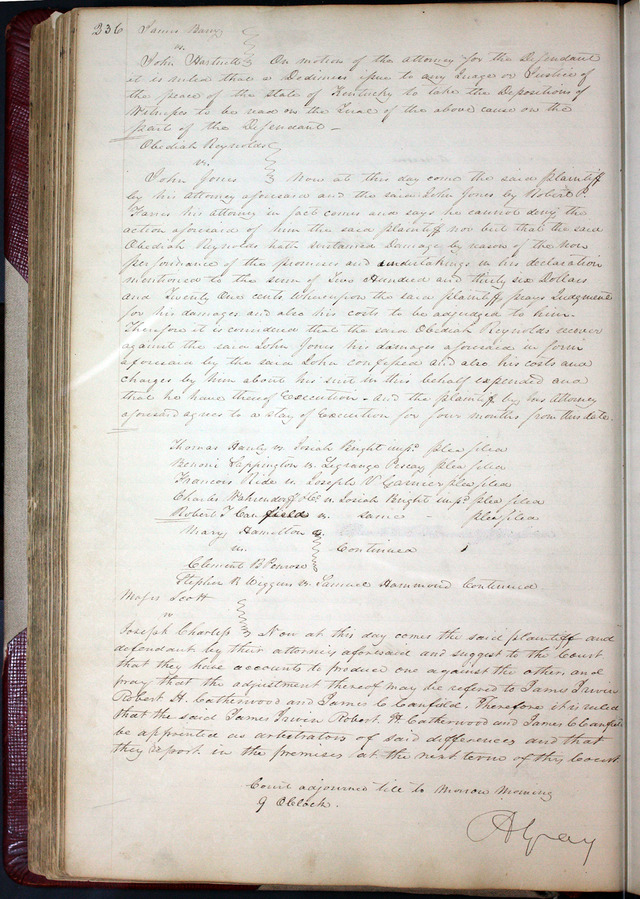 236 James Barry
vs.
John Hartnett On motion of the attorney for the Defendant
it is ruled that a Dedimus issue to any Judge or Justice of
the peace of the state of Kentucky to take the Depositions of
Witnesses to be read on the Trial of the above cause on the
part of the Defendant –
Obediah Reynolds
vs.
John Jones Now at this day come the said plaintiff
by his attorney aforesaid and the said John Jones by Robert P.
Farris his attorney in fact comes and says he cannot deny the
action aforesaid of him the said plaintiff nor but that the said
Obediah Reynolds hath sustained Damage by reason of the non
performance of the promises and undertakings in his declaration
mentioned to the sum of Two Hundred and thirty six Dollars
and Twenty One cents whereupon the said plaintiff prays Judgment
for his damages and also his costs to be adjudged to him.
Therefore it is considered that the said Obediah Reynolds recover
against the said John Jones his damages aforesaid in form
aforesaid by the said John confessed and also his costs and
charges by him about his suit in this behalf expended and
that he have thereof Execution – and the plaintiff by his Attorney
aforesaid agrees to a stay of Execution for four months from this date.
Thomas Hanly vs. Josiah Bright impd. plea filed
Benoni Sappington vs. Legrange plea filed
Francois Ride vs. Joseph V Garnier plea filed
Charles Wahrendorff & Co vs. Josiah Bright impd. plea filed
Robert T Canfield vs. Same - plea filed
Mary Hamilton
vs. Continued
Clement B Penrose
Stephen R Wiggins vs. Samuel Hammond Continued
Moses Scott
vs
Joseph Charless Now at this day comes the said plaintiff and
defendant by their attornies aforesaid and suggest to the Court
that they have accounts to produce one against the other, and
pray that the adjustment thereof may be refered to James Irwin
Robert H. Catherwood and James C Canfield. Therefore it is ruled
that the said James Irwin Robert H Catherwood and James C Canfield
be appointed as arbitrators of said differences and that
they report in the premises at the next term of this Court
Court adjourned till to Morrow Morning
9 OClock.
A Gray